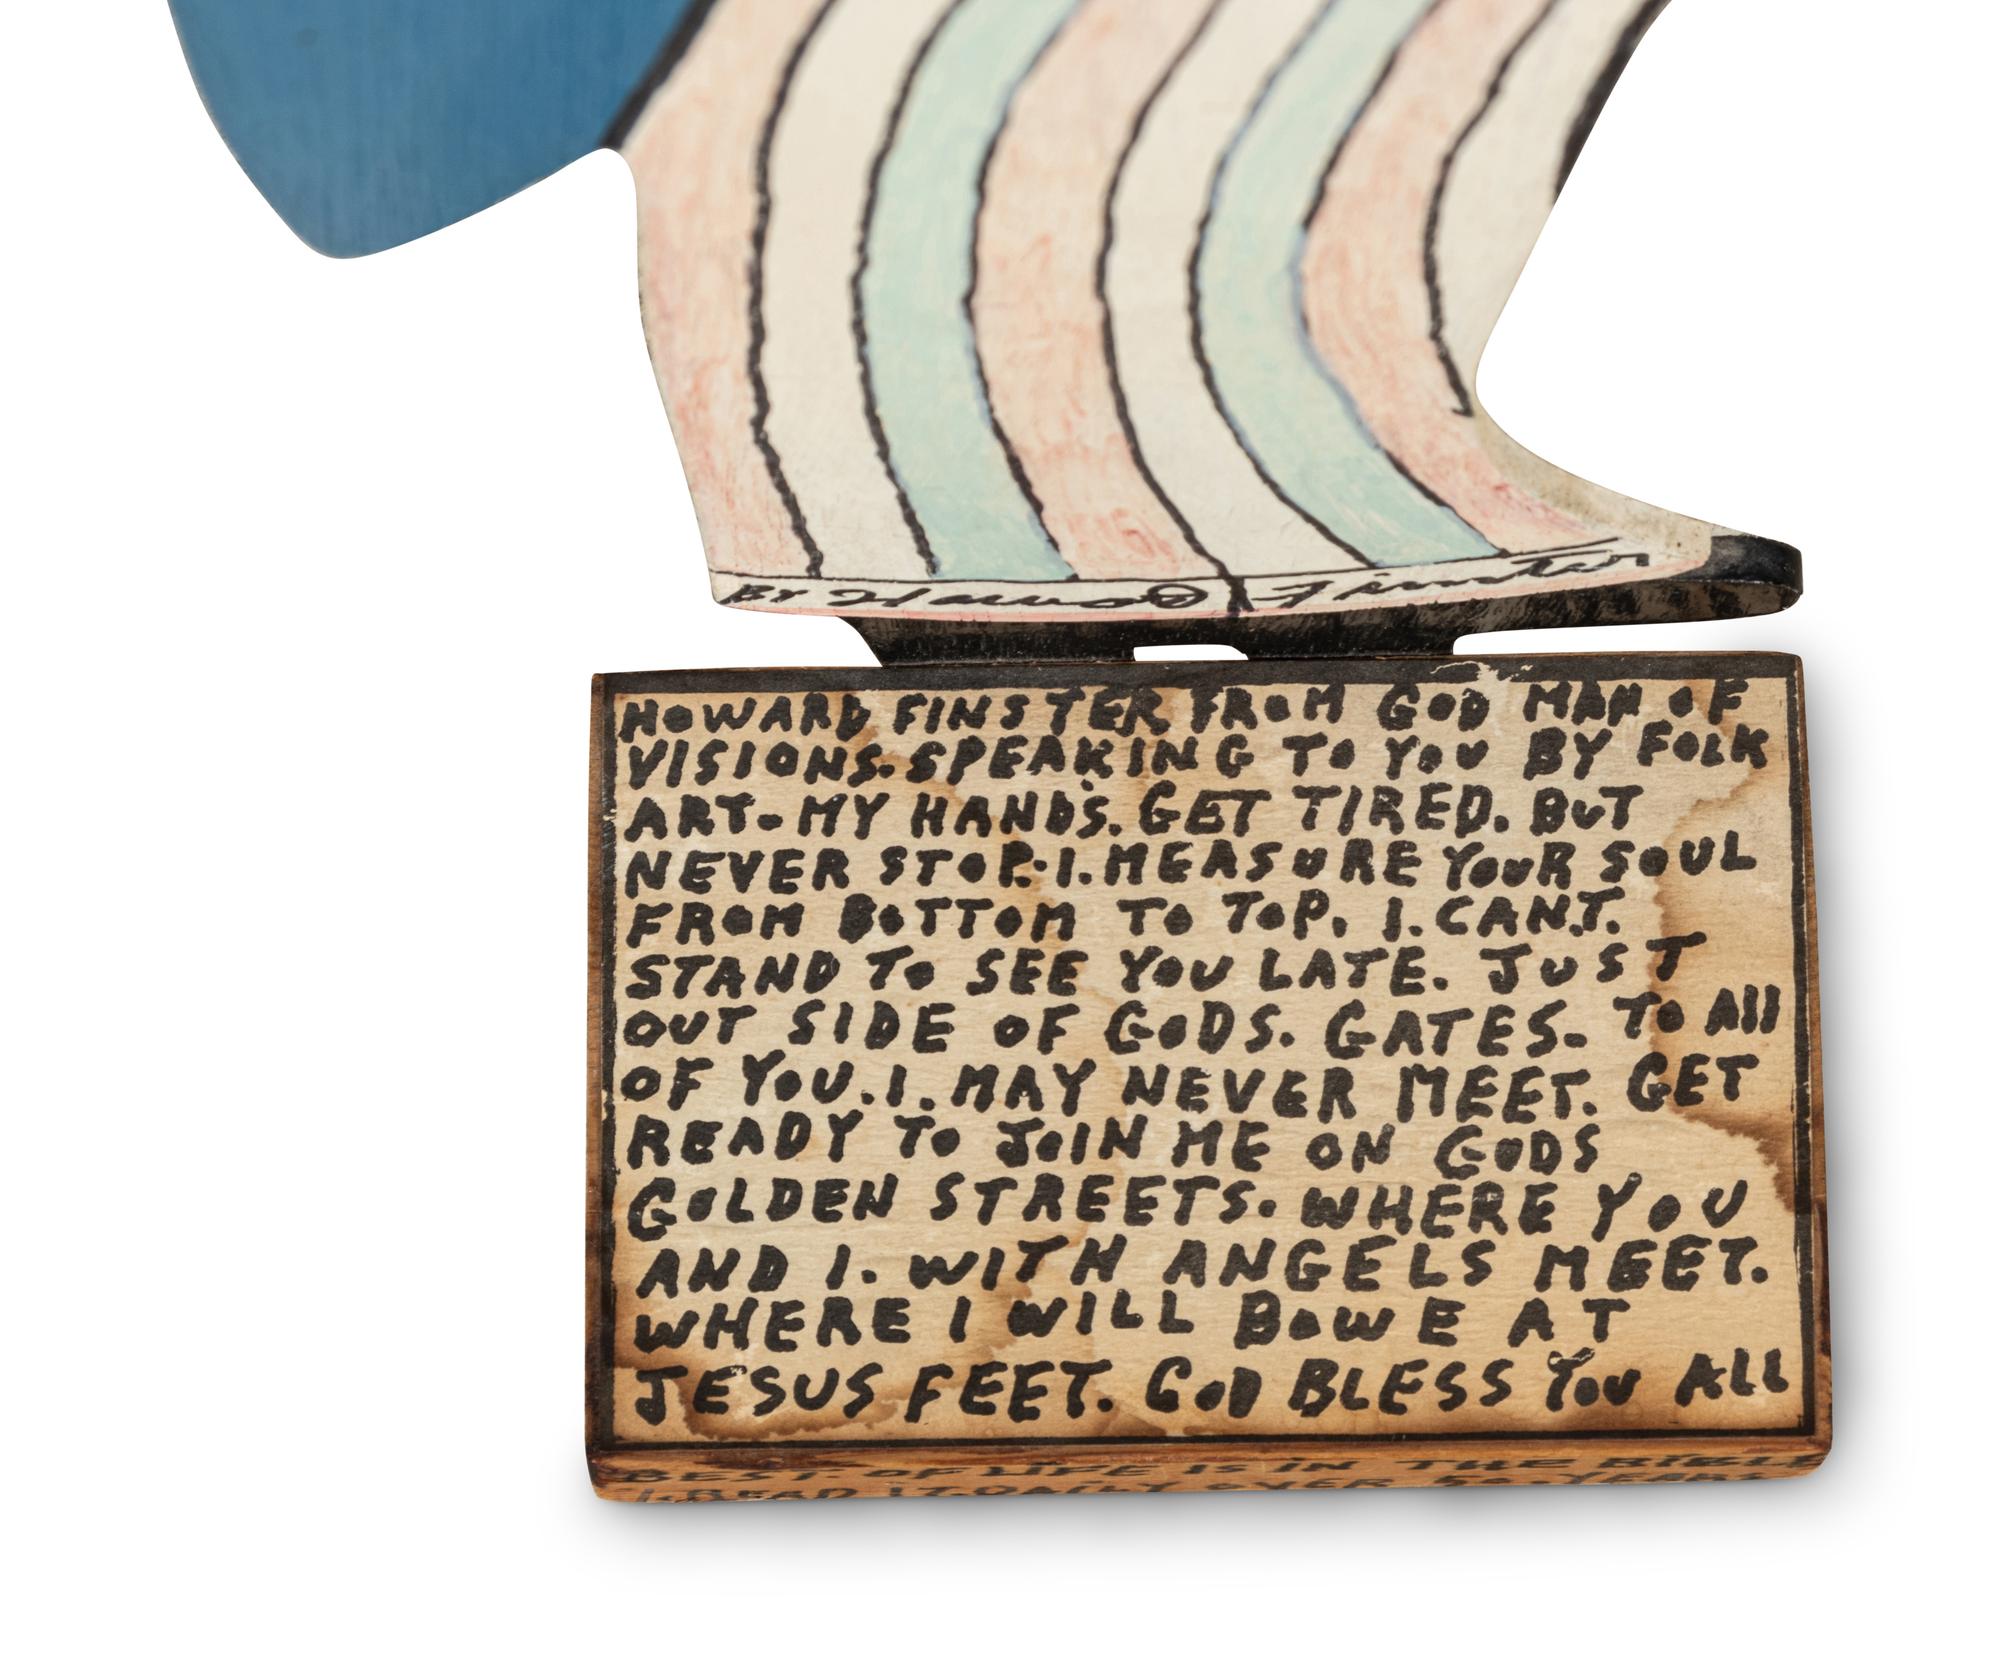 BY Howard Finster
HOWARD FINSTER FROM GOD MAN OF
VISIONS. SPEAKING TO YOU BY FOLK
ART- MY HANDS. GET TIRED. BUT
NEVER STOP. I. MEASURE YOUR SOUL
FROM BOTTOM TO TOP. I. CAN.T.
STAND TO SEE YOU LATE. JUST
OUT SIDE OF GODS. GATES. TO All
OF YOU. I. MAY NEVER MEET. GET
READY TO JOIN ME ON GODS
GOLDEN STREETS. WHERE YOU
AND I. WITH ANGELS MEET.
WHERE I WILL BOWE AT
JESUS FEET. GOD BLESS YOU ALL
BEST. OF LIFE IS IN THE BIBLE
I. READ IT. DAILY OVER 50 YEARS